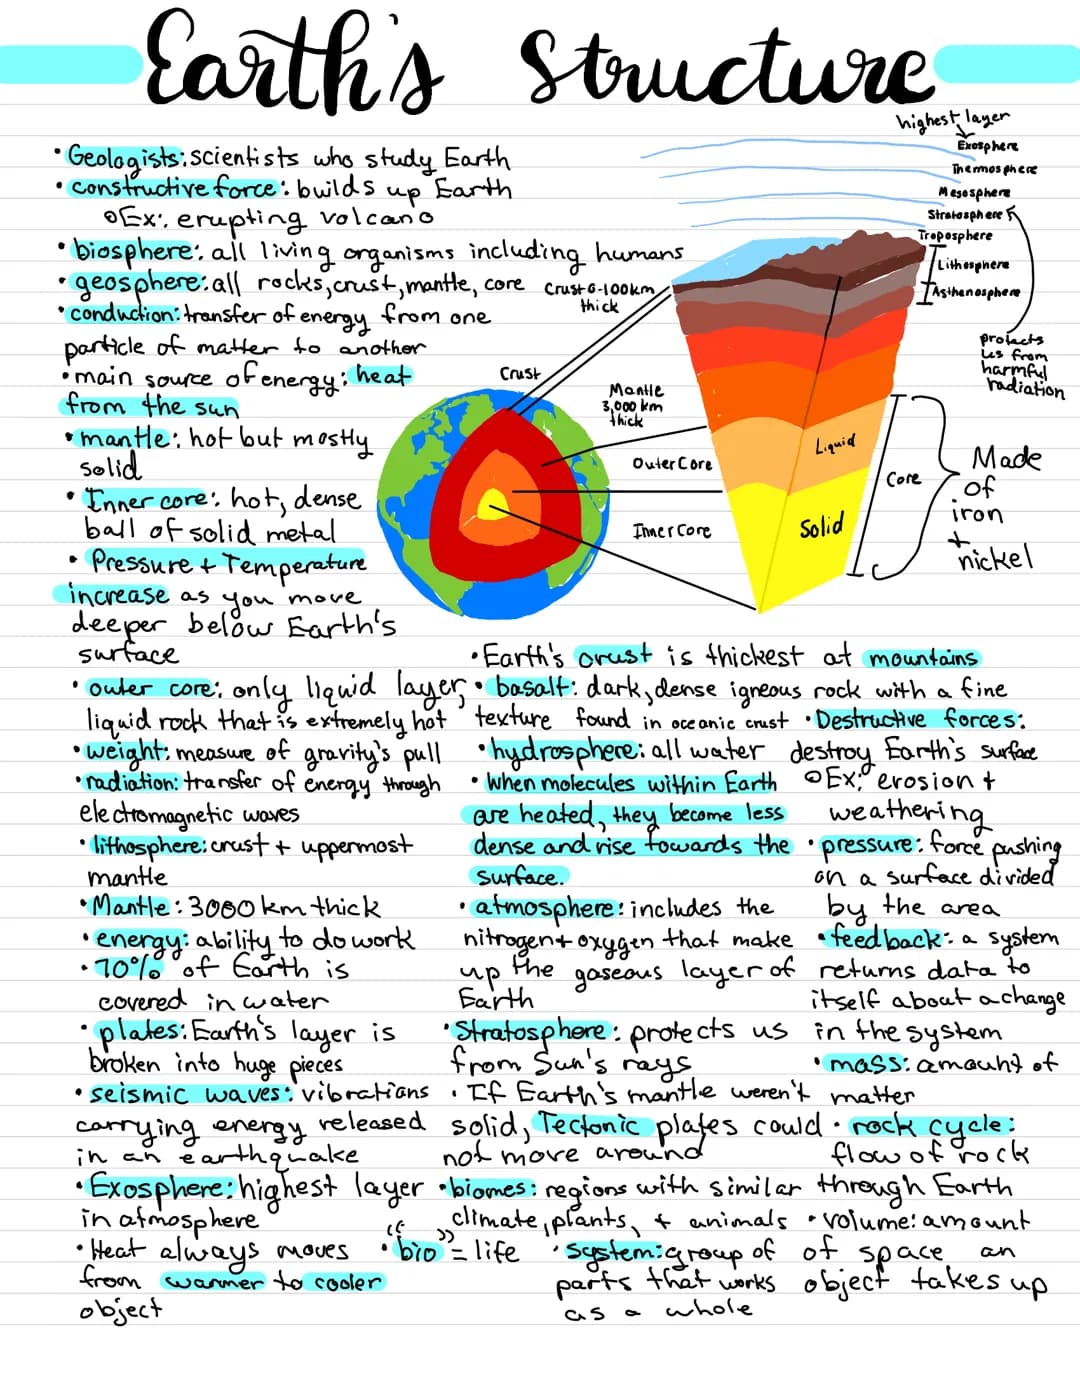 Earth's Structure
• Geologists: scientists who study Earth
• constructive force: builds up Earth
o Ex: erupting volcano
• biosphere: all living organisms including humans
• geosphere: all rocks, crust, mantle, core
• conduction: transfer of energy from one
particle of matter to another
• main source of energy: heat
from the sun
• mantle: hot but mostly
solid
• Inner core: hot, dense
ball of solid metal
• Pressure + Temperature
increase as you move
deeper below Earth's
surface
highest layer
Exosphere
Thermosphere
Mesosphere
Stratosphere
Troposphere
Lithosphere
Asthenosphere
protects
us from
harmful
radiation
Crust 6-100km
thick
Crust
Mantle
3,000 km
thick
Outer Core
Inner Core
Liquid
Solid
Core
Made
of
iron
+
nickel
• outer core: only liquid layer,
liquid rock that is extremely hot
• weight: measure of gravity's pull
• radiation: transfer of energy through
electromagnetic waves
• lithosphere: crust + uppermost
mantle
• Mantle: 3000 km thick
• energy: ability to do work
• 70% of Earth is
covered in water
• plates: Earth's layer is
broken into huge pieces
• seismic waves: vibrations
carrying energy released
in an earthquake
• Exosphere: highest layer
in atmosphere
• Heat always moves
from warmer to cooler
object
• Earth's crust is thickest at mountains
• basalt: dark, dense igneous rock with a fine
texture found in oceanic crust
• hydrosphere: all water
• When molecules within Earth
are heated, they become less
dense and rise towards the
surface.
• atmosphere: includes the
nitrogen + oxygen that make
up the gaseous layer of
Earth
• Stratosphere: protects us
from Sun's rays
• If Earth's mantle weren't
solid, Tectonic plates could
not move around
• biomes: regions with similar
climate, plants, + animals
• "bio" = life
• System: group of
parts that works
as a whole
• Destructive forces:
destroy Earth's surface
o Ex: erosion +
weathering
• pressure: force pushing
on a surface divided
by the area
• feedback: a system
returns data to
itself about a change
in the system
• mass: amount of
matter
• rock cycle:
flow of rock
through Earth
• volume: amount
of space an
object takes up